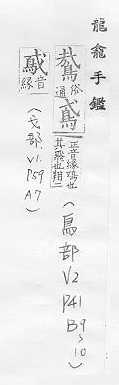 龍龕手鑑
鷙俗通鳶正音緣鴟也其飛也翔二
(鳥部 V2 P41 B9~10)
鳶音緣
(戈部 V1 P59 A7)